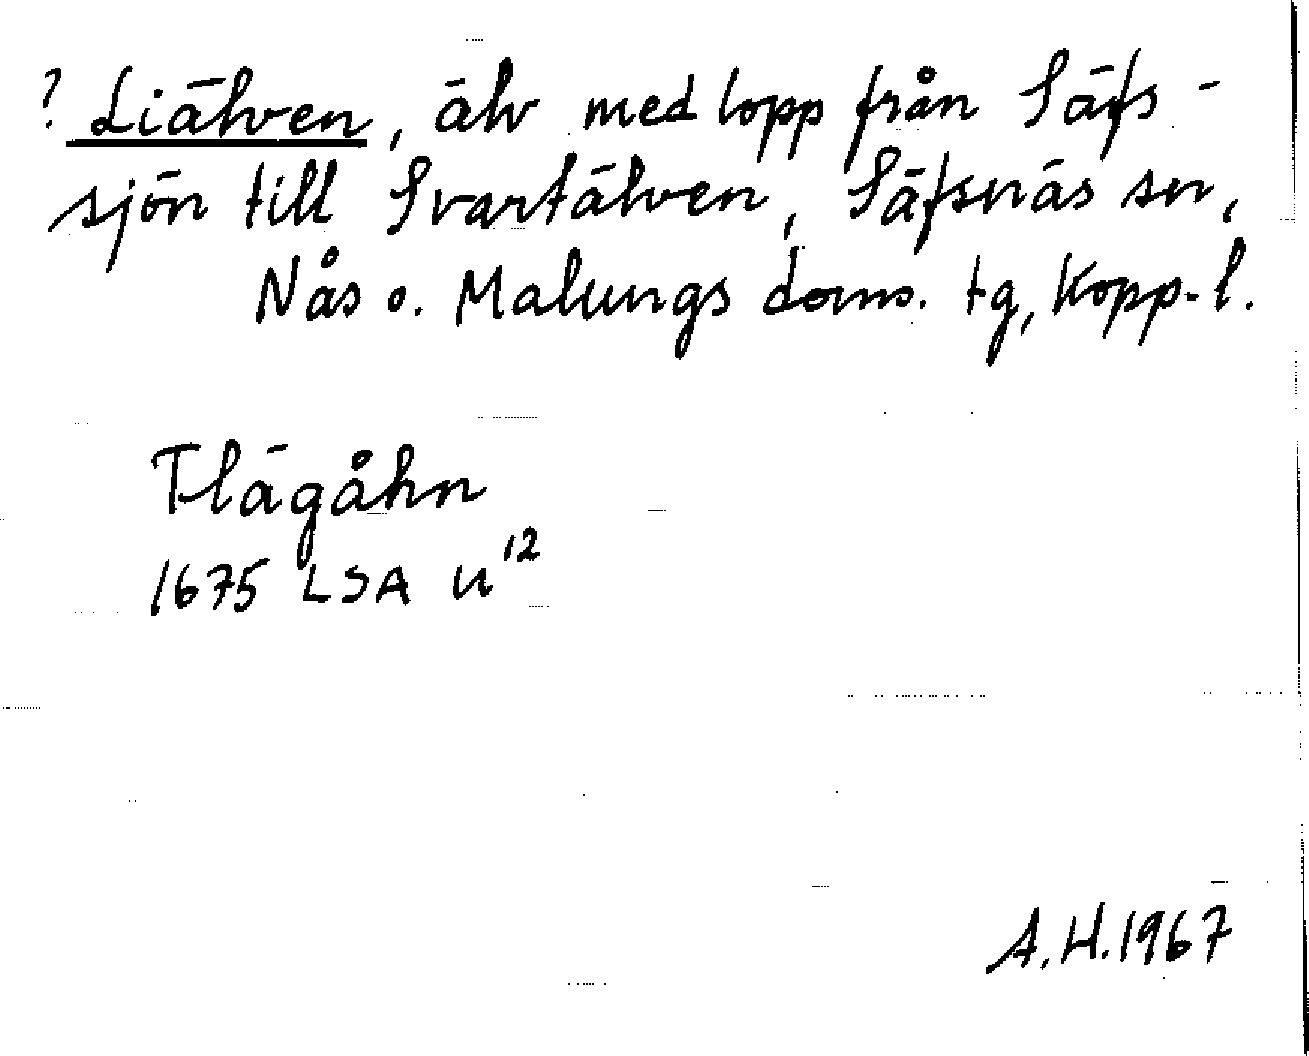 ? Liälven, älv med lopp från Säfs-
sjön till Svartälven, Säfsnäs sn,
Nås o. Malungs doms. tg, Kopp. l.
Flägåhn
1675 LSA U¹²
A.H. 1967